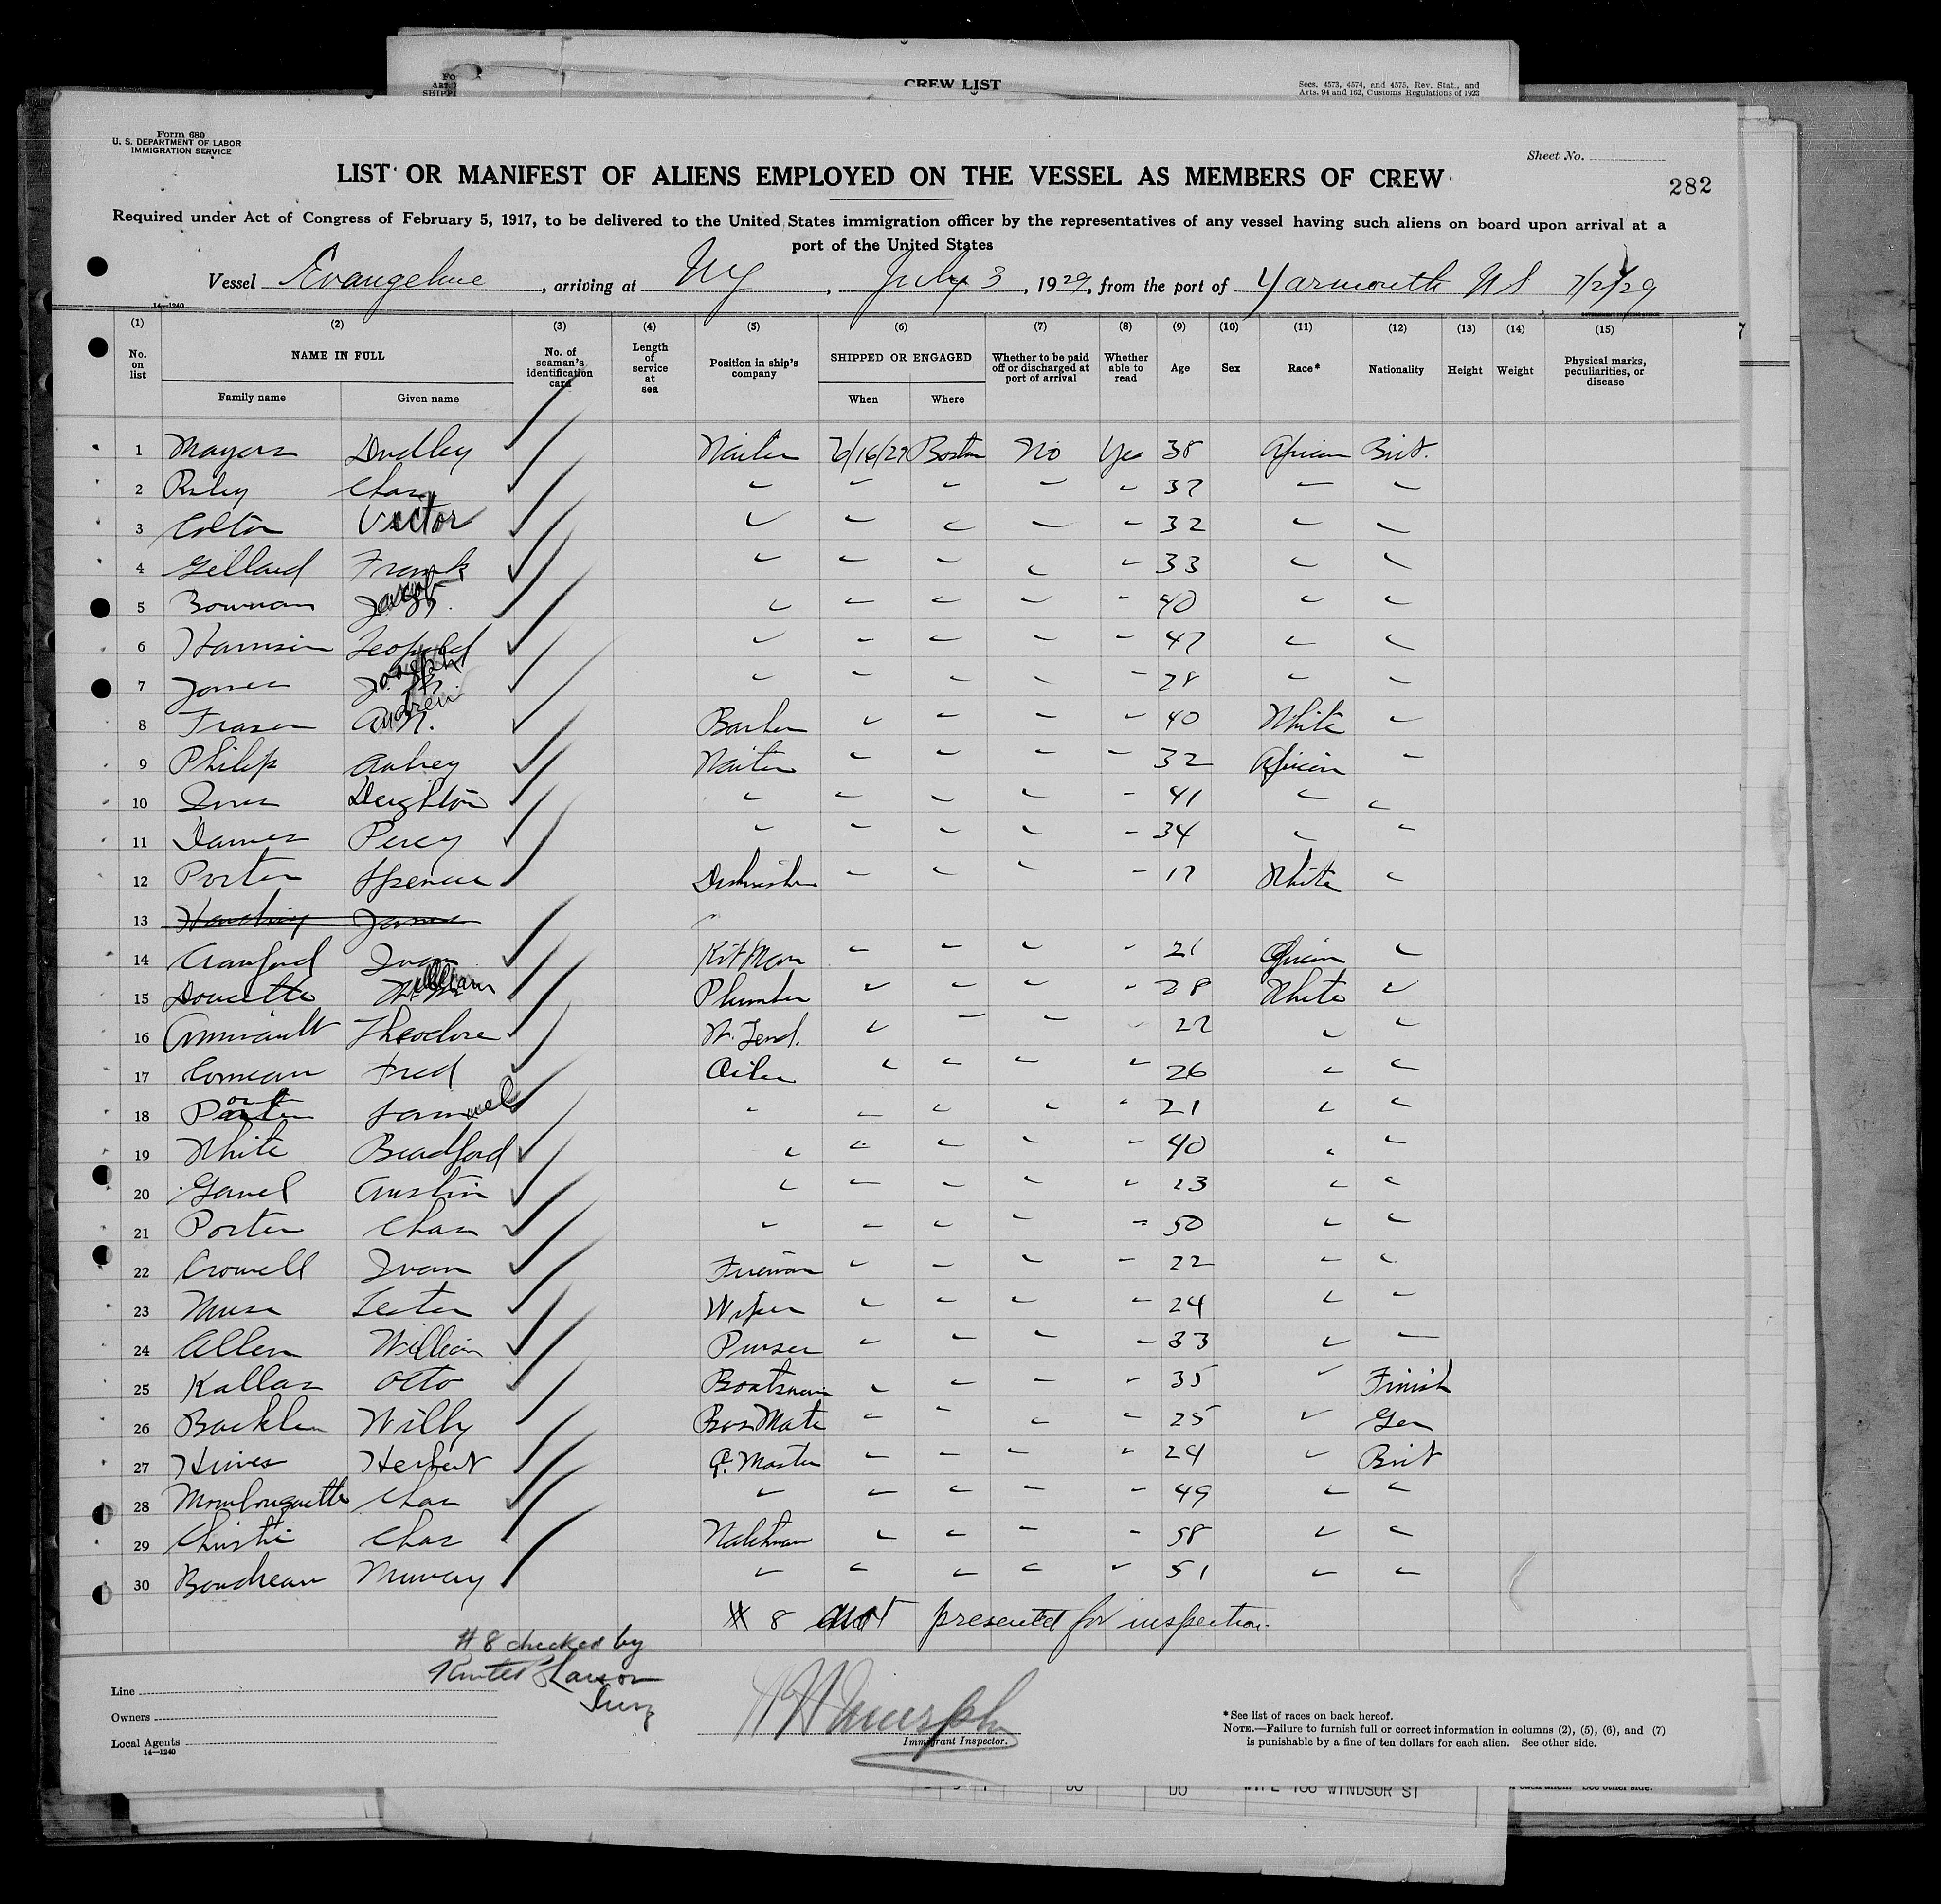 CREW LIST
Secs. 4573, 4574, and 4575, Rev. Stat., and
Arts. 94 and 162, Customs Regulations of 1923
Form 680
U. S. DEPARTMENT OF LABOR
IMMIGRATION SERVICE
Sheet No.
LIST OR MANIFEST OF ALIENS EMPLOYED ON THE VESSEL AS MEMBERS OF CREW
282
Required under Act of Congress of February 5, 1917, to be delivered to the United States immigration officer by the representatives of any vessel having such aliens on board upon arrival at a
port of the United States
Vessel Evangeline, arriving at NY, July 3, 1929, from the port of Yarmouth NS 7/2/29
14—1240
(1) (2) (3) (4) (5) (6) (7) (8) (9) (10) (11) (12) (13) (14) (15)
No. on list NAME IN FULL Family name Given name No. of seaman's identification card Length of service at sea Position in ship's company SHIPPED OR ENGAGED When Where Whether to be paid off or discharged at port of arrival Whether able to read Age Sex Race* Nationality Height Weight Physical marks, peculiarities, or disease
1 Mayers Dudley Waiter 6/16/29 Boston No Yes 38 African Brit.
2 Riley Chas 37
3 Colton Victor 32
4 Gillard Frank 33
5 Bowman Joseph 40
6 Harrison Leopold 47
7 Jones Joseph 28
8 Fraser Andrew Barber 40 White
9 Philip Aubrey Waiter 32 African
10 Deighton 41
11 James Percy 34
12 Porter Spencer Dishwasher 17 White
13 Harding James
14 Crawford Ivan Kit Man 21 African
15 Doucette William Plumber 28 White
16 Amirault Theodore W. Tend. 22
17 Comeau Fred Oiler 26
18 Porter Samuel 21
19 White Bradford 40
20 Gavel Austin 23
21 Porter Chas 50
22 Crowell Ivan Fireman 22
23 Muise Lester Wiper 24
24 Allen William Purser 33
25 Kallas Otto Boatswain 35 Finish
26 Backlen Willy Bos Mate 25 Ger
27 Hines Herbert Q. Master 24 Brit
28 Mombourquette Chas 49
29 Christie Chas Watchman 58
30 Boudreau Murray 51
# 8 not presented for inspection.
# 8 checked by
Larson
Line
Owners
Local Agents
14—1240
Immigrant Inspector.
*See list of races on back hereof.
NOTE.—Failure to furnish full or correct information in columns (2), (5), (6), and (7)
is punishable by a fine of ten dollars for each alien. See other side.
DO DO WIFE 100 WINDSOR ST